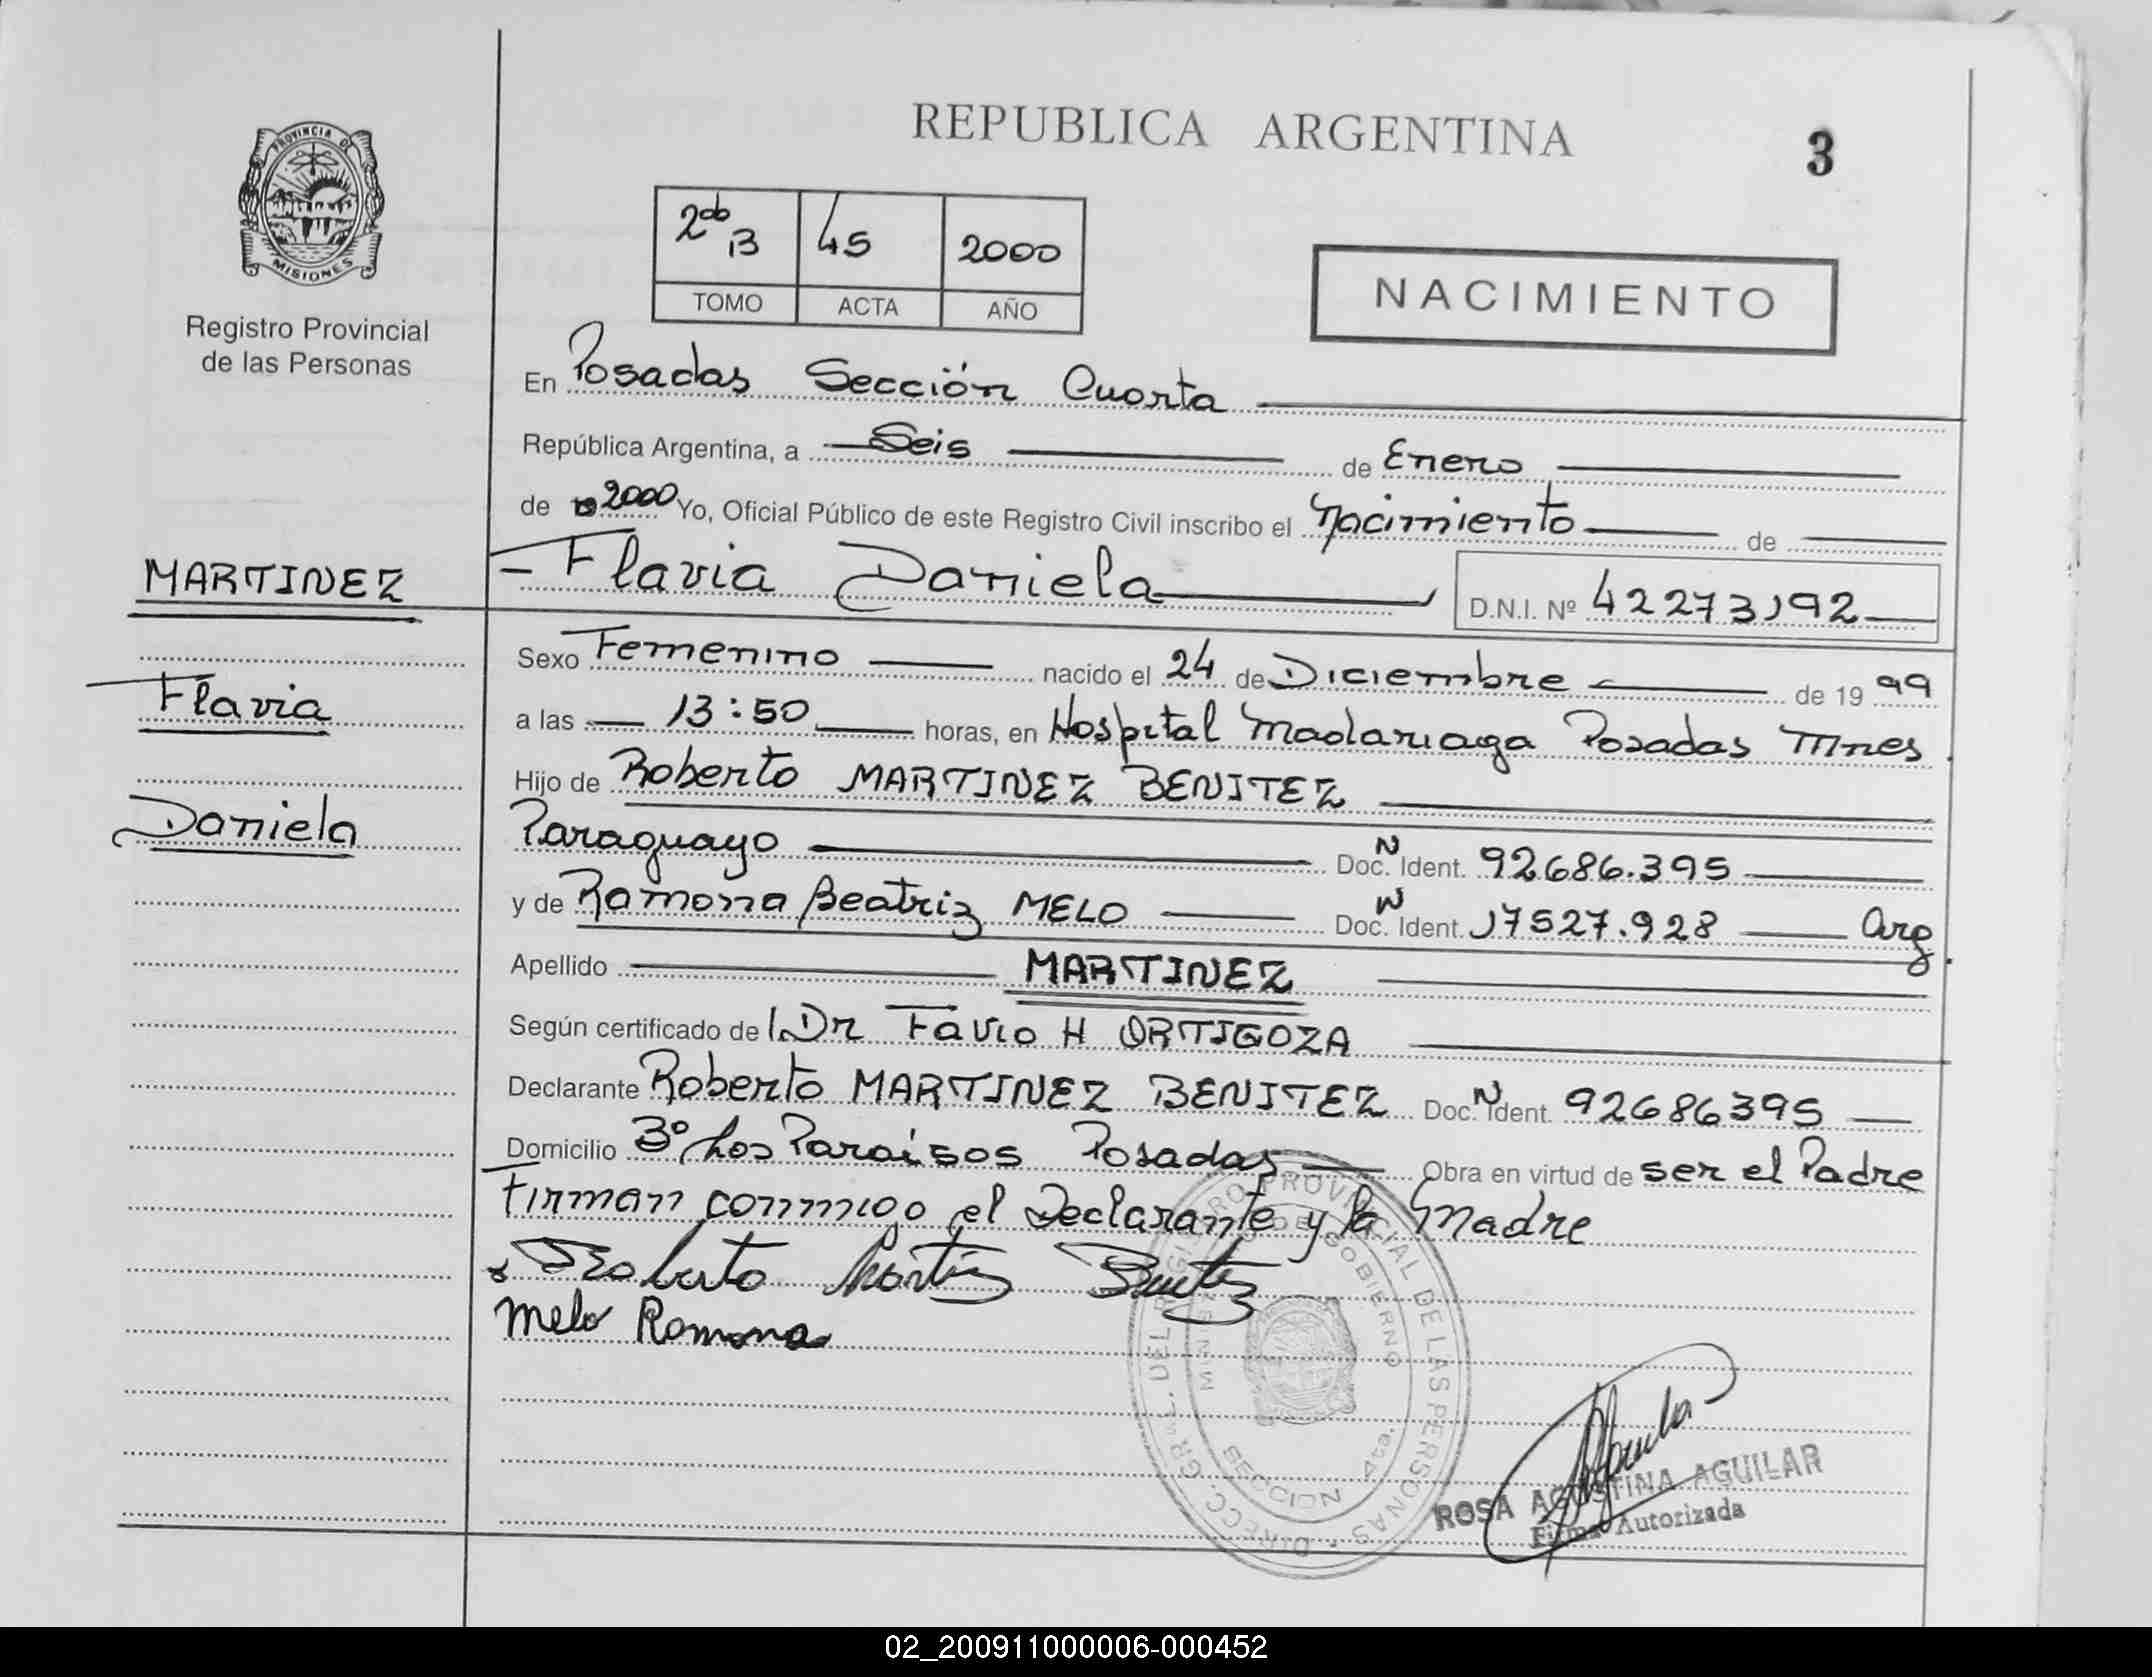 REPUBLICA ARGENTINA
3
PROVINCIA DE
MISIONES
Registro Provincial
de las Personas
2do B 45 2000
TOMO ACTA AÑO
NACIMIENTO
En Posadas Sección Cuarta
República Argentina, a Seis de Enero
de 2000 Yo, Oficial Público de este Registro Civil inscribo el Nacimiento de
MARTINEZ
Flavia
Daniela
Flavia Daniela D.N.I. Nº 42273192
Sexo Femenino nacido el 24 de Diciembre de 19 99
a las 13:50 horas, en Hospital Madariaga Posadas Mnes.
Hijo de Roberto MARTINEZ BENITEZ
Paraguayo Doc. N Ident. 92686.395
y de Ramona Beatriz MELO Doc. N Ident. 17527.928 Arg.
Apellido MARTINEZ
Según certificado del Dr Favio H ORTIGOZA
Declarante Roberto MARTINEZ BENITEZ Doc. N Ident. 92686395
Domicilio Bº Los Paraisos Posadas Obra en virtud de ser el Padre
Firman conmigo el Declarante y la Madre
Roberto Martinez Benitez
Melo Ramona
DIRECC. GRAL. DEL REGISTRO PROVINCIAL DE LAS PERSONAS
MINIST. DE GOBIERNO
SECCION 4ta.
Aguilar
ROSA AGUSTINA AGUILAR
Firma Autorizada
02_200911000006-000452